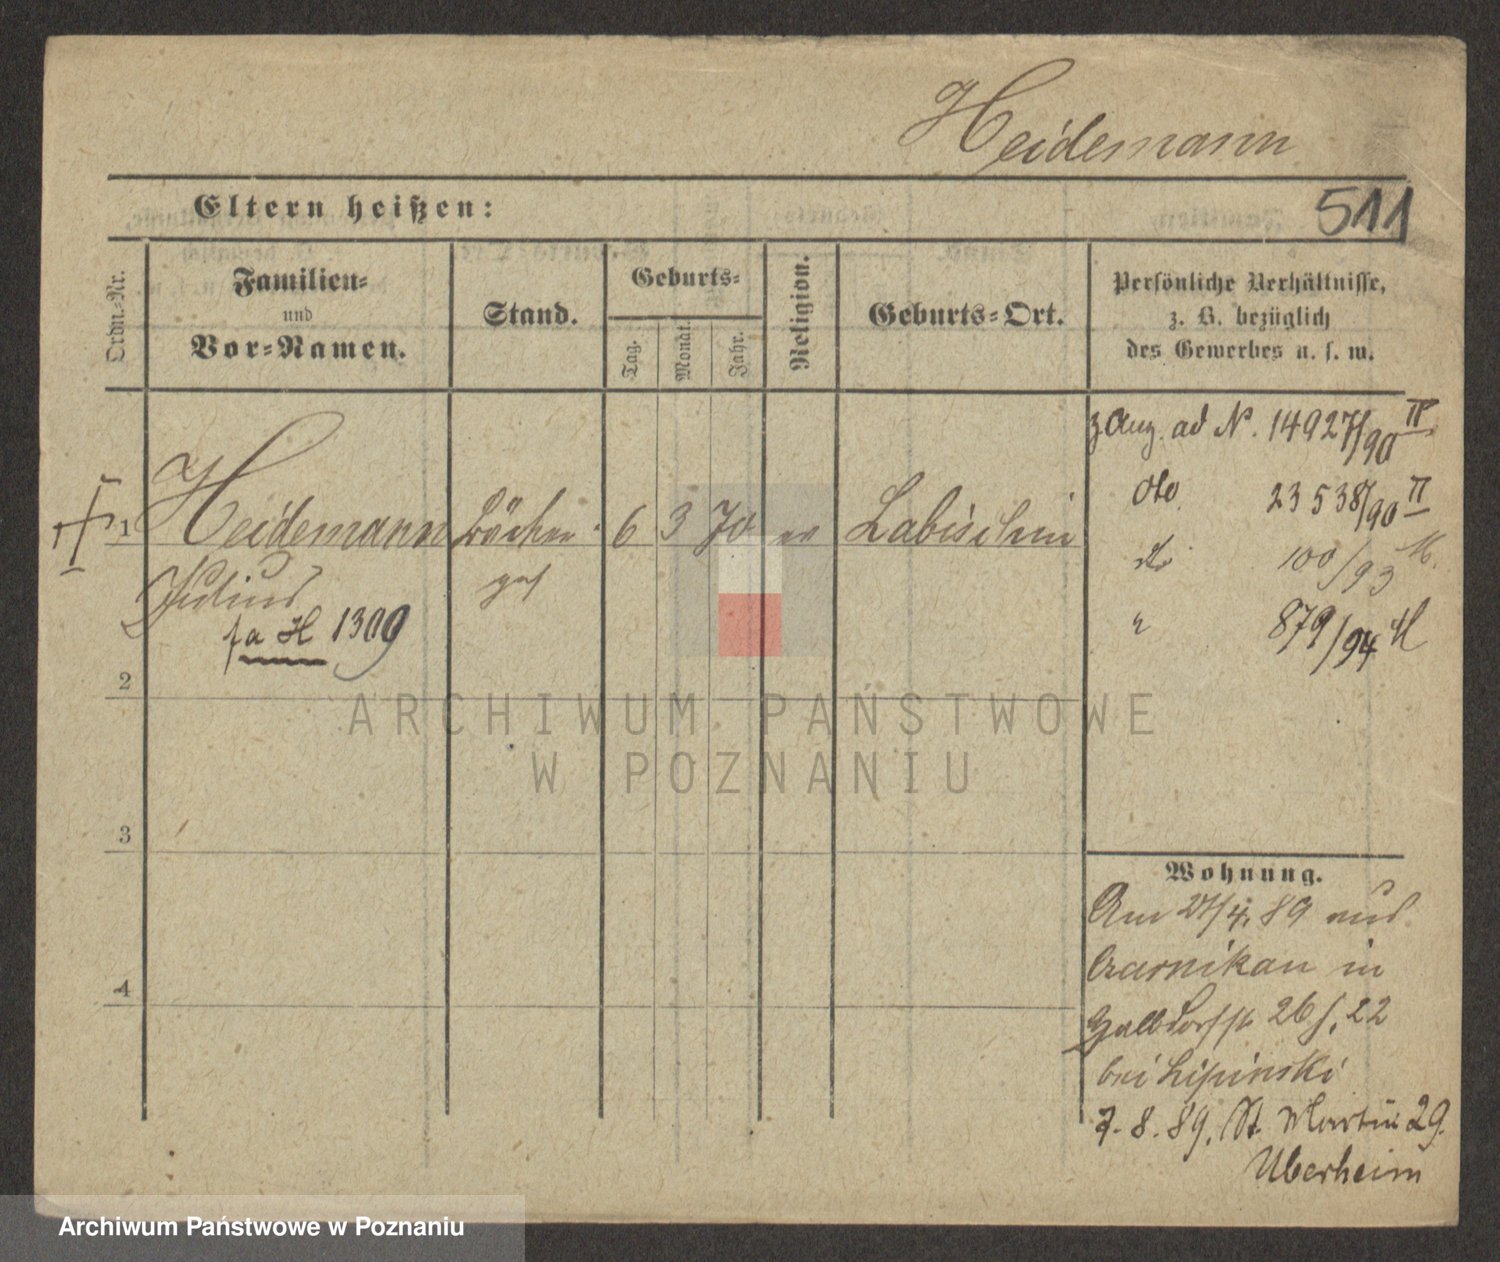 Heidemann
511
Eltern heißen:
Ordn.-Nr.
Familien-
und
Vor-Namen.
Stand.
Geburts-
Tag.
Monat.
Jahr.
Religion.
Geburts-Ort.
Persönliche Verhältnisse,
z. B. bezüglich
des Gewerbes u. s. w.
1 Heidemann Bäcker- 6 3 70 ev Labischin
Julius
fa H 1309
z Anz. ad N. 14927/90 II
dto 23538/90 II
dto 100/93 M.
" 879/94 M
2
3
4
Wohnung.
Am 27/4. 89 aus
Czarnikau in
Halbdorfst 26 f, 22
bei Lipinski
7. 8. 89. St. Martin 29.
Uberheim
ARCHIWUM PAŃSTWOWE
W POZNANIU
Archiwum Państwowe w Poznaniu